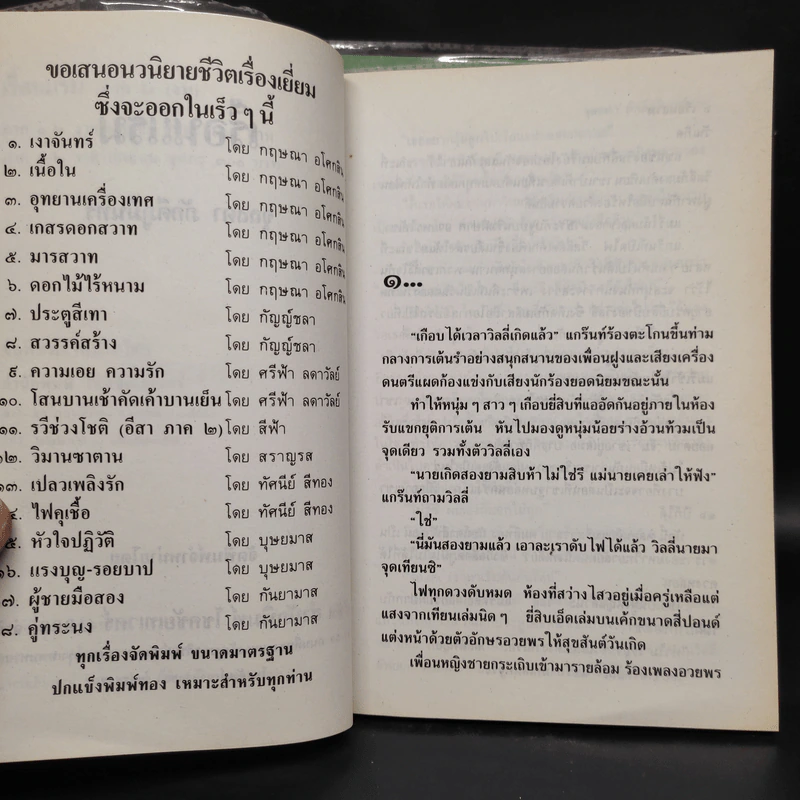 ขอเสนอนวนิยายชีวิตเรื่องเยี่ยม
ซึ่งจะออกในเร็ว ๆ นี้
๑. เงาจันทร์ โดย กฤษณา อโศกสิน
๒. เนื้อใน โดย กฤษณา อโศกสิน
๓. อุทยานเครื่องเทศ โดย กฤษณา อโศกสิน
๔. เกสรดอกสวาท โดย กฤษณา อโศกสิน
๕. มารสวาท โดย กฤษณา อโศกสิน
๖. ดอกไม้ไร้หนาม โดย กฤษณา อโศกสิน
๗. ประตูสีเทา โดย กัญญ์ชลา
๘. สวรรค์สร้าง โดย กัญญ์ชลา
๙. ความเอย ความรัก โดย ศรีฟ้า ลดาวัลย์
๑๐. โสนบานเช้าคัดเค้าบานเย็น โดย ศรีฟ้า ลดาวัลย์
๑๑. รวีช่วงโชติ (อีสา ภาค ๒) โดย สีฟ้า
๑๒. วิมานซาตาน โดย สราญรส
๑๓. เปลวเพลิงรัก โดย ทัศนีย์ สีทอง
๔. ไฟคุเชื้อ โดย ทัศนีย์ สีทอง
๕. หัวใจปฏิวัติ โดย บุษยมาส
๑๖. แรงบุญ-รอยบาป โดย บุษยมาส
๗. ผู้ชายมือสอง โดย กันยามาส
๘. คู่ทระนง โดย กันยามาส
ทุกเรื่องจัดพิมพ์ ขนาดมาตรฐาน
ปกแข็งพิมพ์ทอง เหมาะสำหรับทุกท่าน
๑...
“เกือบได้เวลาวิลลี่เกิดแล้ว” แกร๊นท์ร้องตะโกนขึ้นท่าม
กลางการเต้นรำอย่างสนุกสนานของเพื่อนฝูงและเสียงเครื่อง
ดนตรีแผดก้องแข่งกับเสียงนักร้องยอดนิยมขณะนั้น
ทำให้หนุ่ม ๆ สาว ๆ เกือบยี่สิบที่แออัดกันอยู่ภายในห้อง
รับแขกยุติการเต้น หันไปมองดูหนุ่มน้อยร่างอ้วนท้วมเป็น
จุดเดียว รวมทั้งตัววิลลี่เอง
“นายเกิดสองยามสิบห้าไม่ใช่รึ แม่นายเคยเล่าให้ฟัง”
แกร๊นท์ถามวิลลี่
“ใช่”
“นี่มันสองยามแล้ว เอาละเราดับไฟได้แล้ว วิลลี่นายมา
จุดเทียนซิ”
ไฟทุกดวงดับหมด ห้องที่สว่างไสวอยู่เมื่อครู่เหลือแต่
แสงจากเทียนเล่มนิด ๆ ยี่สิบเอ็ดเล่มบนเค้กขนาดสี่ปอนด์
แต่งหน้าด้วยตัวอักษรอวยพรให้สุขสันต์วันเกิด
เพื่อนหญิงชายกระเถิบเข้ามารายล้อม ร้องเพลงอวยพร